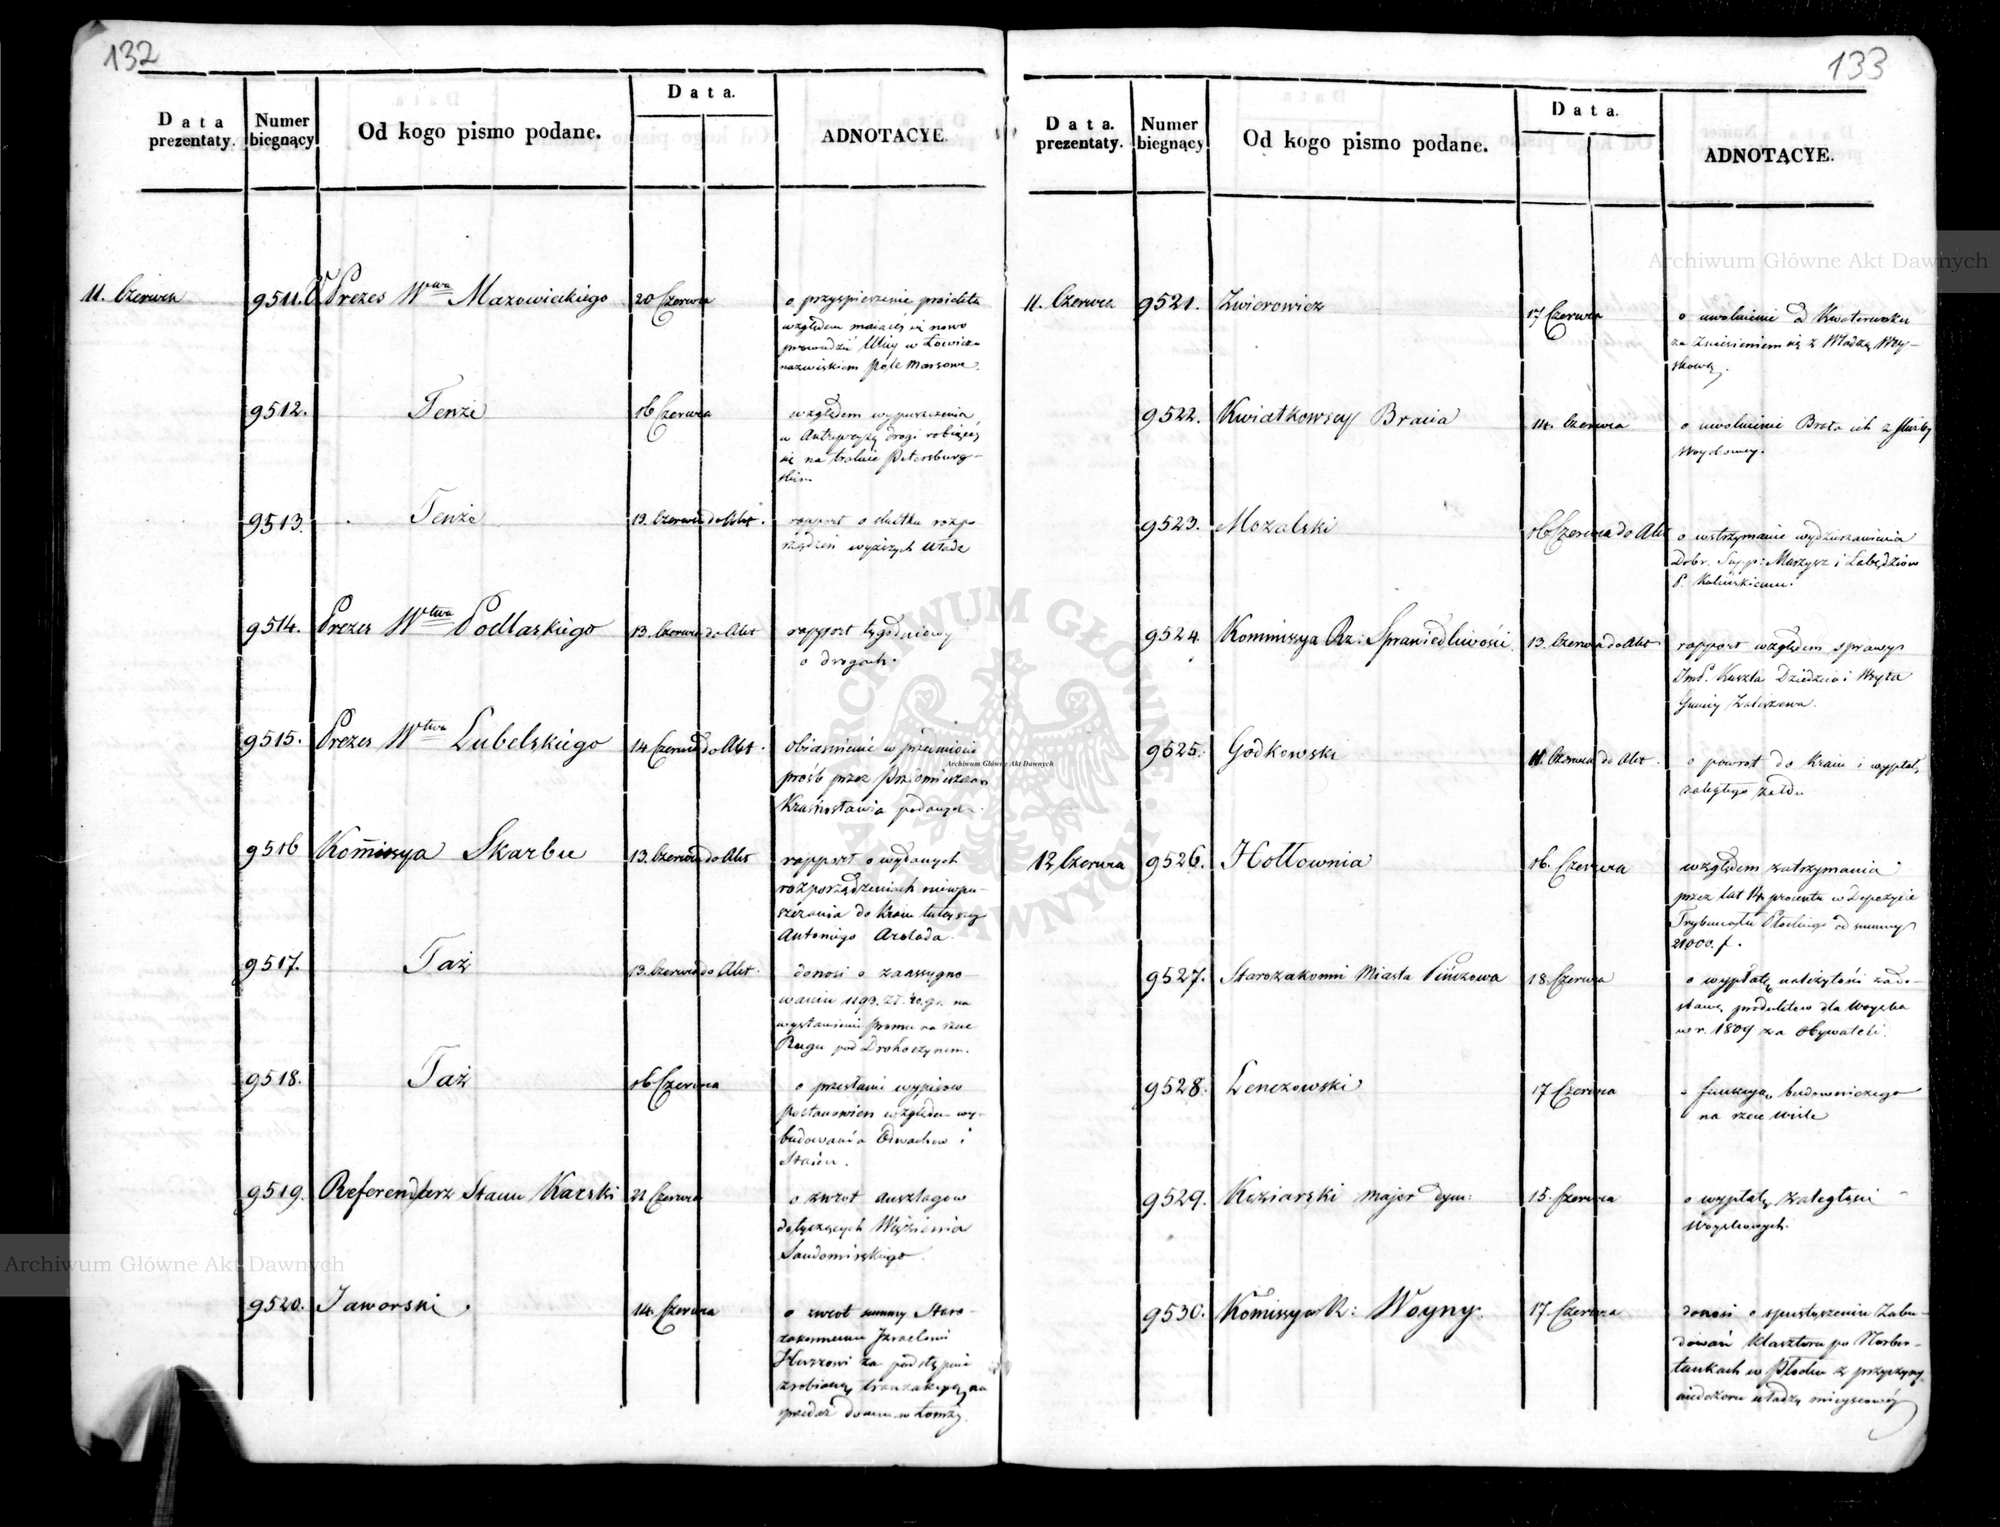 132
Data prezentaty.
Numer biegnący
Od kogo pismo podane.
Data.
ADNOTACYE.
11. Czerwca
9511. Prezes Wtwa Mazowieckiego
20 Czerwca
o przyspieszenie proiektu
względem maiącéy się nowo
prowadzić Ulicy w Łowiczu
nazwiskiem Pole Marsowe.
9512. Tenże
16 Czerwca
względem wypuszczenia
w Antrepryzę drogi robiącéy
się na trakcie Petersburg-
skim
9513. Tenże
13. Czerwca do Akt.
rapport o skutku rozpo
rządzeń wyższych Władz
9514. Prezes Wtwa Podlaskiego
13. Czerwca do Akt
rapport tygodniowy
o drogach.
9515. Prezes Wtwa Lubelskiego
14 Czerwca do Akt.
obiaśnienie w przedmiocie
prośb przez
Krasnostawia podanych.
9516 Kommissya Skarbu
13. Czerwca do Akt
rapport o wydanych
rozporządzeniach niewpu-
szczania do Kraiu tuteyszey
Antoniego
9517. Taż
13. Czerwca do Akt.
donosi o zaassygno-
waniu 1193. 27. gr. na
wystawienie Promu na rzece
Bugu pod Drohoczynem.
9518. Taż
16 Czerwca
o przesłanie wypisów
postanowień względem wy-
budowania Odwachów i
Staien.
9519. Referendarz Stanu Karski
21 Czerwca
o zwrot auszlagów
dotyczących Więzienia
Sandomirskiego.
9520. Jaworski.
14. Czerwca
o zwrot summy Staro-
zakonnemu Izraelowi
Herszowi za podstępnie
zrobioną tranzakcyą na
sprzedaż domu w Łomży.
133
Data. prezentaty.
Numer biegnący
Od kogo pismo podane.
Data.
ADNOTACYE.
11. Czerwca
9521. Zwierowicz
17 Czerwca
o uwolnienie od Kwaterunku
za zniesieniem się z Władzą Woy-
skową.
9522. Kwiatkowscy Bracia
14. Czerwca
o uwolnienie Brata ich z służby
Woyskowey.
9523. Mozalski
16 Czerwca do Akt
o wstrzymanie wydzierzawienia
Dobr. Supp: Marzysz i Łabędziów
P. Kalińskiemu.
9524. Kommissya Rz: Sprawiedliwości
13 Czerwca do Akt
rapport względem sprawy
Dziedzica i Woyta
Gminy
9525. Godkowski
11. Czerwca do Akt.
o powrot do Kraiu i wypłatę
zaległego żołdu
12 Czerwca
9526. Hołłownia
16. Czerwca
względem zatrzymania
przez lat 14 procentu w Depozycie
Trybunału Płockiego od summy
21000. f.
9527. Starozakonni Miasta Pińczowa
18. Czerwca
o wypłatę należytości za do-
stawę produktów dla Woyska
w r. 1809 za Obywateli.
9528. Lenczowski
17 Czerwca
o funkcyą budowniczego
na rzece Wiśle
9529. Koziarski major dym:
15. Czerwca
o wypłatę zaległości
Woyskowych.
9530. Kommissya R: Woyny.
17. Czerwca
donosi o spustoszeniu Zabu-
dowań Klasztoru po Norber-
tankach w Płocku z przyczyny
niedozoru władzy mieyscowéy
Archiwum Główne Akt Dawnych
Archiwum Główne Akt Dawnych
Archiwum Główne Akt Dawnych
ARCHIWUM GŁÓWNE AKT DAWNYCH